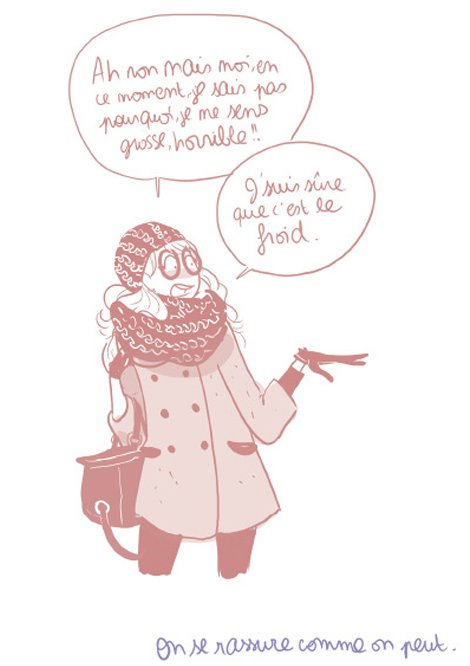 Ah non mais moi, en
ce moment, je sais pas
pourquoi, je me sens
grosse, horrible!!
J'suis sûre
que c'est le
froid.
On se rassure comme on peut.